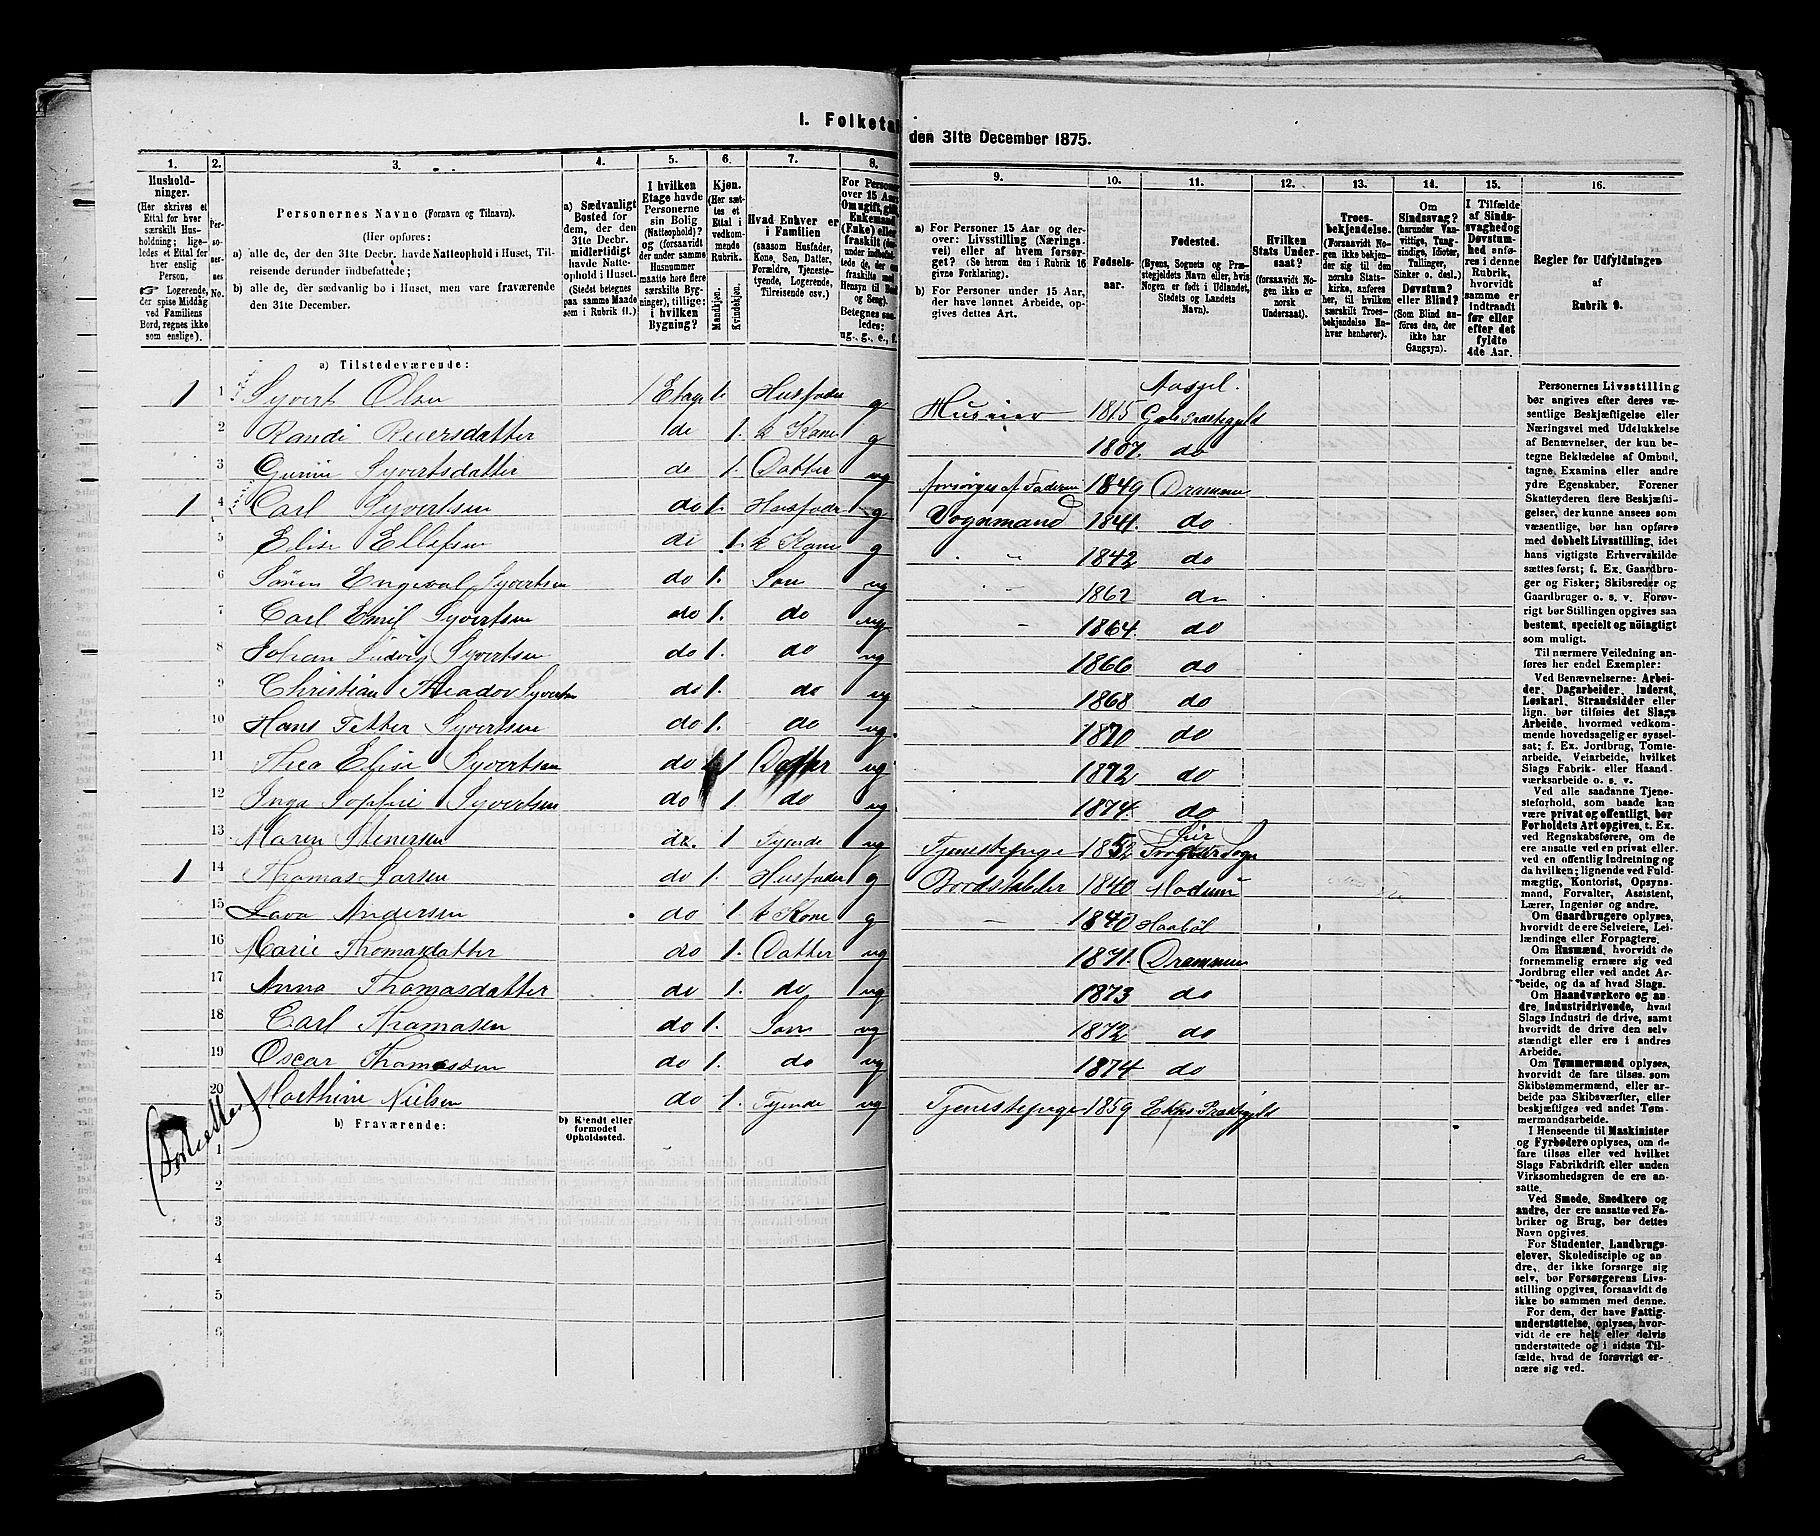 I. Folketal den 31te December 1875.
1. 2. 3. 4. 5. 6. 7. 8. 9. 10. 11. 12. 13. 14. 15. 16.
Husholdninger.
(Her skrives et
Ettal for hver
særskilt Husholdning;
ligeledes et Ettal for
hver enslig
Person.
☞ Logerende,
der spise Middag
ved Familiens
Bord, regnes ikke
som enslige).
Personernes No.
Personernes Navne (Fornavn og Tilnavn).
(Her opføres:
a) alle de, der den 31te Decbr. havde Natteophold i Huset, Tilreisende derunder indbefattede;
b) alle de, der sædvanlig bo i Huset, men vare fraværende
den 31te December.
a) Sædvanligt
Bosted for
dem, der den
31te Decbr.
midlertidigt
havde Natteophold i Huset.
(Stedet betegnes
paa samme Maade
som i Rubrik 11.)
I hvilken
Etage havde
Personerne
sin Bolig
(Natteophold)?
og (forsaavidt
der under samme
Husnummer
maatte høre flere
særskilte Bygninger), tillige:
i hvilken
Bygning?
Kjøn.
(Her sættes et
Ettal i
vedkommende
Rubrik.
Mandkjøn.
Kvindekjøn.
Hvad Enhver er
i Familien
(saasom Husfader,
Kone, Søn, Datter,
Forældre, Tjenestetyende, Logerende,
Tilreisende osv.)
a) For Personer 15 Aar og derover: Livsstilling (Næringsvei) eller af hvem forsørget? (Se herom den i Rubrik 16
givne Forklaring).
b) For Personer under 15 Aar,
der have lønnet Arbeide, opgives dettes Art.
Fødselsaar.
Fødested.
(Byens, Sognets og Præstegjeldets Navn eller, hvis
Nogen er født i Udlandet,
Stedets og Landets
Navn).
Hvilken
Stats Undersaat?
(forsaavidt Nogen ikke er
norsk
Undersaat).
Troesbekjendelse.
(Forsaavidt Nogen ikke bekjender sig til den
norske Statskirke, anføres
her, til hvilket
særskilt Troesbekjendelse Enhver henhører).
Om
Sindssvag?
(herunder Vanvittige, Tungsindige, Idioter,
Tullinger,
Sinker o. desl.)
Døvstum?
eller Blind?
(Som Blind anføres den, der
ikke har
Gangsyn).
I Tilfælde
af Sindssvaghed og
Døvstumhed anføres i denne
Rubrik,
hvorvidt
samme er
indtraadt
før eller
efter det
fyldte
4de Aar.
Regler for Udfyldningen
af
Rubrik 9.
a) Tilstedeværende:
1 1 Syvert Olsen 1 Etage 1. Husfader g Huseier 1815 Aasgel. Gols Præstegjeld
2 Randi Reiersdatter do 1. k Kone g 1807. do
3 Gunni Syvertsdatter do 1. Datter ug forsørges af Faderen 1849 Drammen
1 4 Carl Syvertsen do 1. Husfader g Vognmand 1841. do
5 Elise Ellefsen do 1. k Kone g 1842 do
6 Sören Engeval Syvertsen do 1. Søn ug 1862 do
7 Carl Emil Syvertsen do 1. do ug 1864. do
8 Johan Ludvig Syvertsen do 1. do ug 1866 do
9 Christian Theador Syvertsen do 1. do ug 1868 do
10 Hans Petter Syvertsen do 1. do ug 1870 do
11 Thea Elise Syvertsen do 1 Datter ug 1872 do
12 Inga Sophie Syvertsen do 1. do ug 1874. do
13 Maren Stenersen do. 1 Tyende ug Tjenestepige 1852 Lier Sogn
1 14 Thomas Larsen do 1. Husfader g Bordstabler 1840 Modum
15 Lava Andersen do 1. k Kone g 1840 Haabøl
16 Marie Thomasdatter do 1. Datter ug 1871. Drammen
17 Anna Thomasdatter do 1. do ug 1873 do
18 Carl Thomasen do 1. Søn ug 1872 do
19 Oscar Thomassen do 1. do ug 1874 do
20 Marthine Nielsen do 1. Tyende ug Tjenestepige 1859 Ekers Præstegjeld
b) Fraværende:
b) Kjendt eller
formodet
Opholdssted.
1
2
3
4
5
6
Personernes Livsstilling
bør angives efter deres væsentlige Beskjæftigelse eller
Næringsvei med Udelukkelse
af Benævnelser, der kun betegne Beklædelse af Ombud,
tagne Examina eller andre
ydre Egenskaber. Forener
Skatteyderen flere Beskjæftigelser, der kunne ansees som
væsentlige, bør han opføres
med dobbelt Livsstilling, idet
hans vigtigste Erhvervskilde
sættes først; f. Ex. Gaardbruger og Fisker; Skibsreder og
Gaardbruger o. s. v. Forøvrigt bør Stillingen opgives saa
bestemt, specielt og nøiagtigt
som muligt.
Til nærmere Veiledning anføres her endel Exempler:
Ved Benævnelserne: Arbeider, Dagarbeider, Inderst,
Løskarl, Strandsidder eller
lign. bør tilføies det Slags
Arbeide, hvormed vedkommende hovedsagelig er sysselsat; f. Ex. Jordbrug, Tomtearbeide, Veiarbeide, hvilket
Slags Fabrik- eller Haandværksarbeide o. s. v.
Ved alle saadanne Tjenesteforhold, som baade kan
være privat og offentlig, bør
Forholdets Art opgives, t. Ex.
ved Regnskabsførere, om de
ere ansatte ved en privat eller
ved en offentlig Indretning og
da hvilken; lignende ved Fuldmægtig, Kontorist, Opsynsmand, Forvalter, Assistent,
Lærer, Ingeniør og andre.
Om Gaardbrugere oplyses,
hvorvidt de ere Selveiere, Leilændinge eller Forpagtere.
Om Husmænd, hvorvidt de
fornemmelig ernære sig ved
Jordbrug eller ved andet Arbeide, og da af hvad Slags.
Om Haandværkere og andre Industridrivende, hvad
Slags Industri de drive, samt
hvorvidt de drive den selvstændigt eller ere i andres
Arbeide.
Om Tømmermænd oplyses,
hvorvidt de fare tilsøs som
Skibstømmermænd, eller arbeide paa Skibsværfter, eller
beskjæftiges ved andet Tømmermandsarbeide.
I Henseende til Maskinister
og Fyrbødere oplyses, om de
fare tilsøs eller ved hvilket
Slags Fabrikdrift eller anden
Virksomhedsgren de ere ansatte.
Ved Smede, Snedkere og
andre, der ere ansatte ved Fabriker og Brug, bør dettes
Navn opgives.
For Studenter, Landbrugselever, Skoledisciple og andre, der ikke forsørge sig
selv, bør Forsørgerens Livsstilling opgives, forsaavidt de
ikke bo sammen med denne.
For dem, der have Fattigunderstøttelse, oplyses, hvorvidt de ere helt eller delvis
understøttede og i sidste Tilfælde, hvad de forøvrigt ernære sig ved.